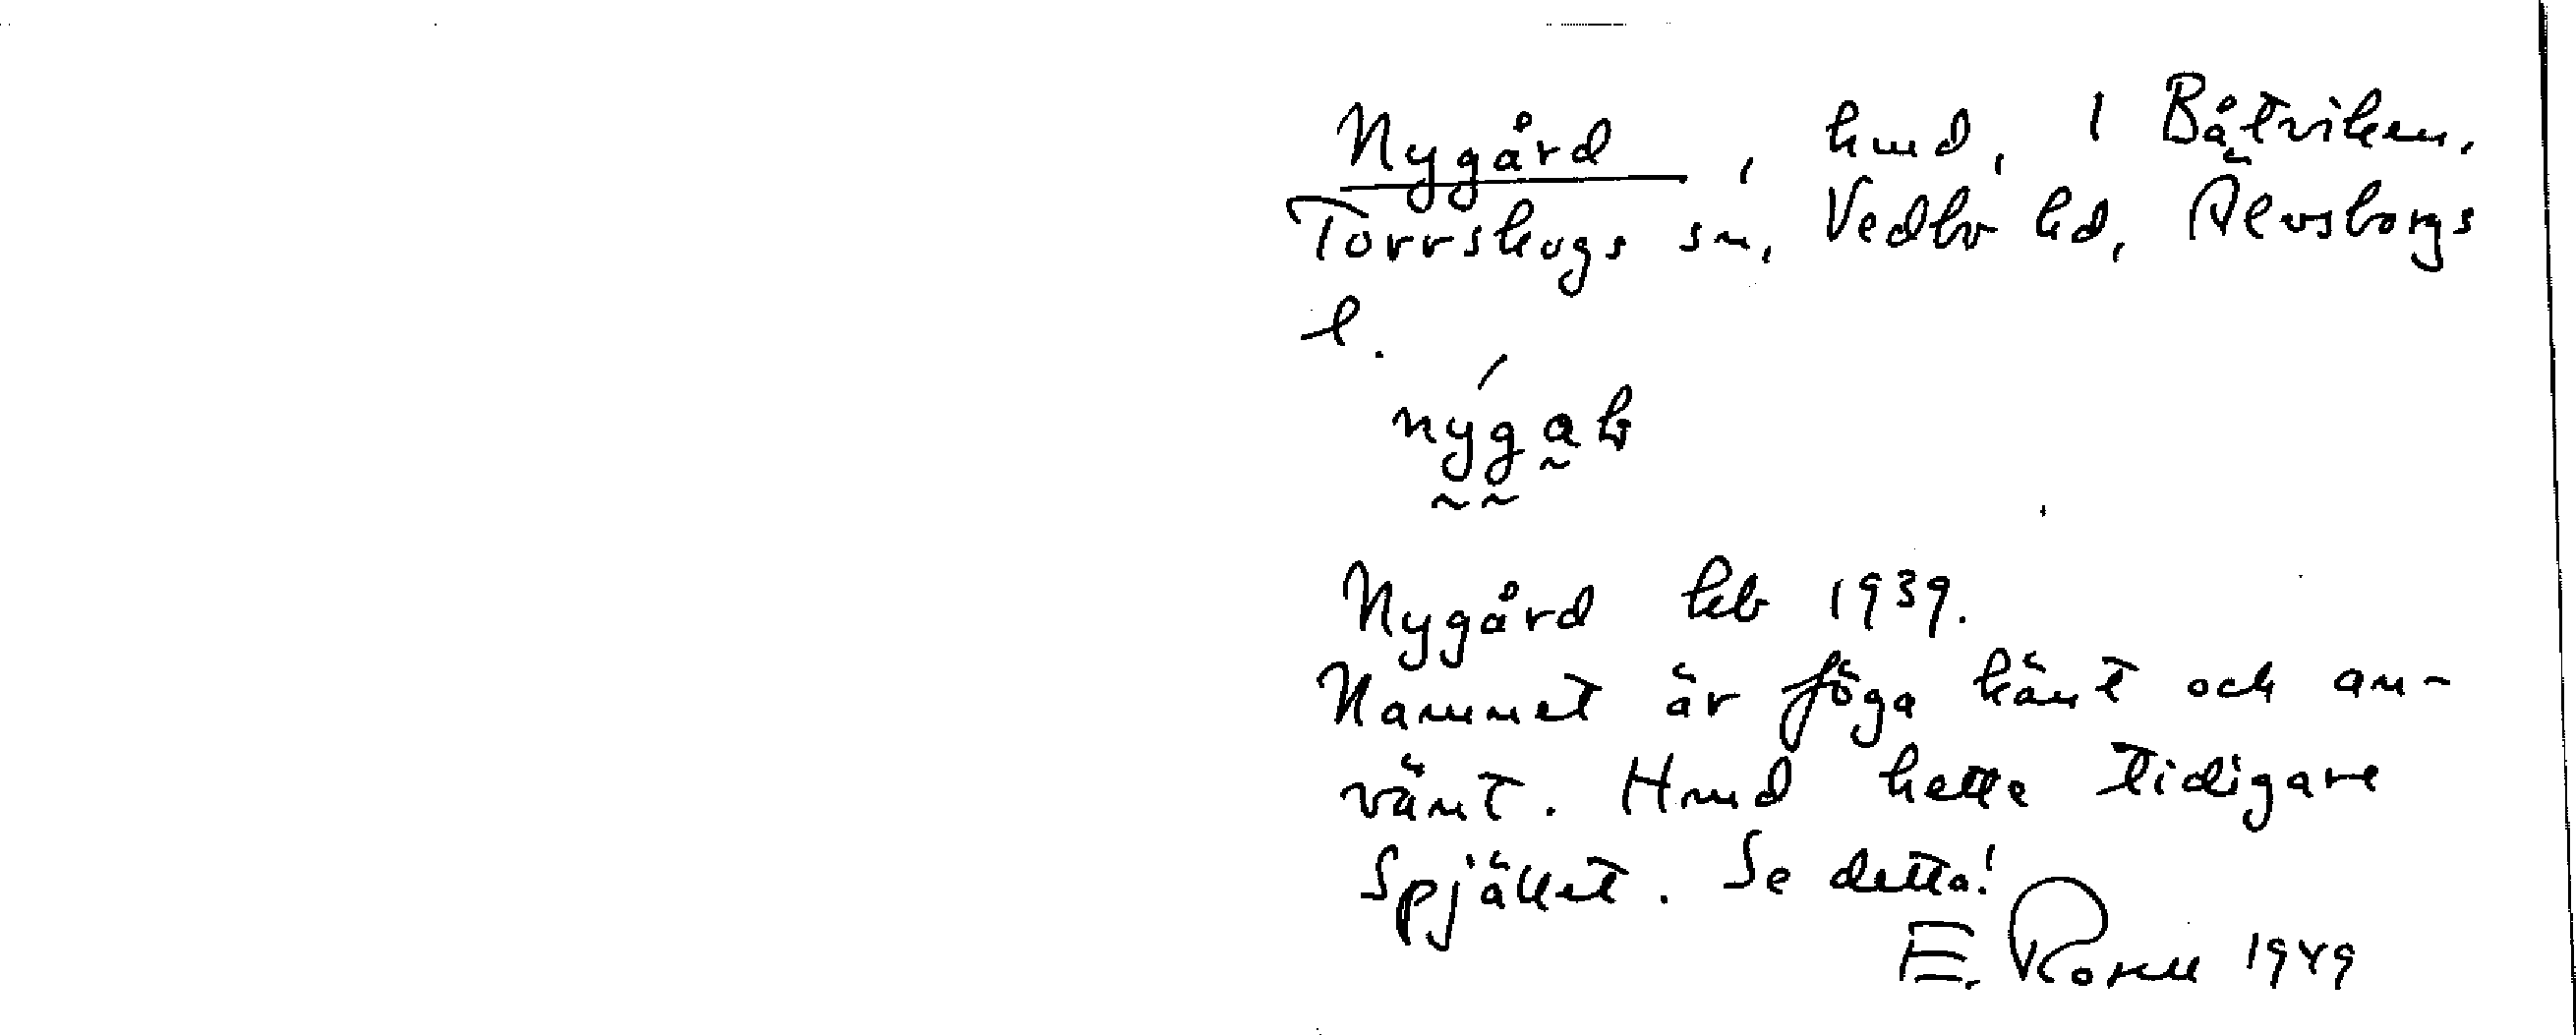 Nygård, hmd, 1 Båtviken,
Torrskogs sn, Vedbo hd, Älvsborgs
l.
Nygård hb 1939.
Namnet är föga känt och an-
vänt. Hmd hette tidigare
Spjället. Se detta!
E. 1949